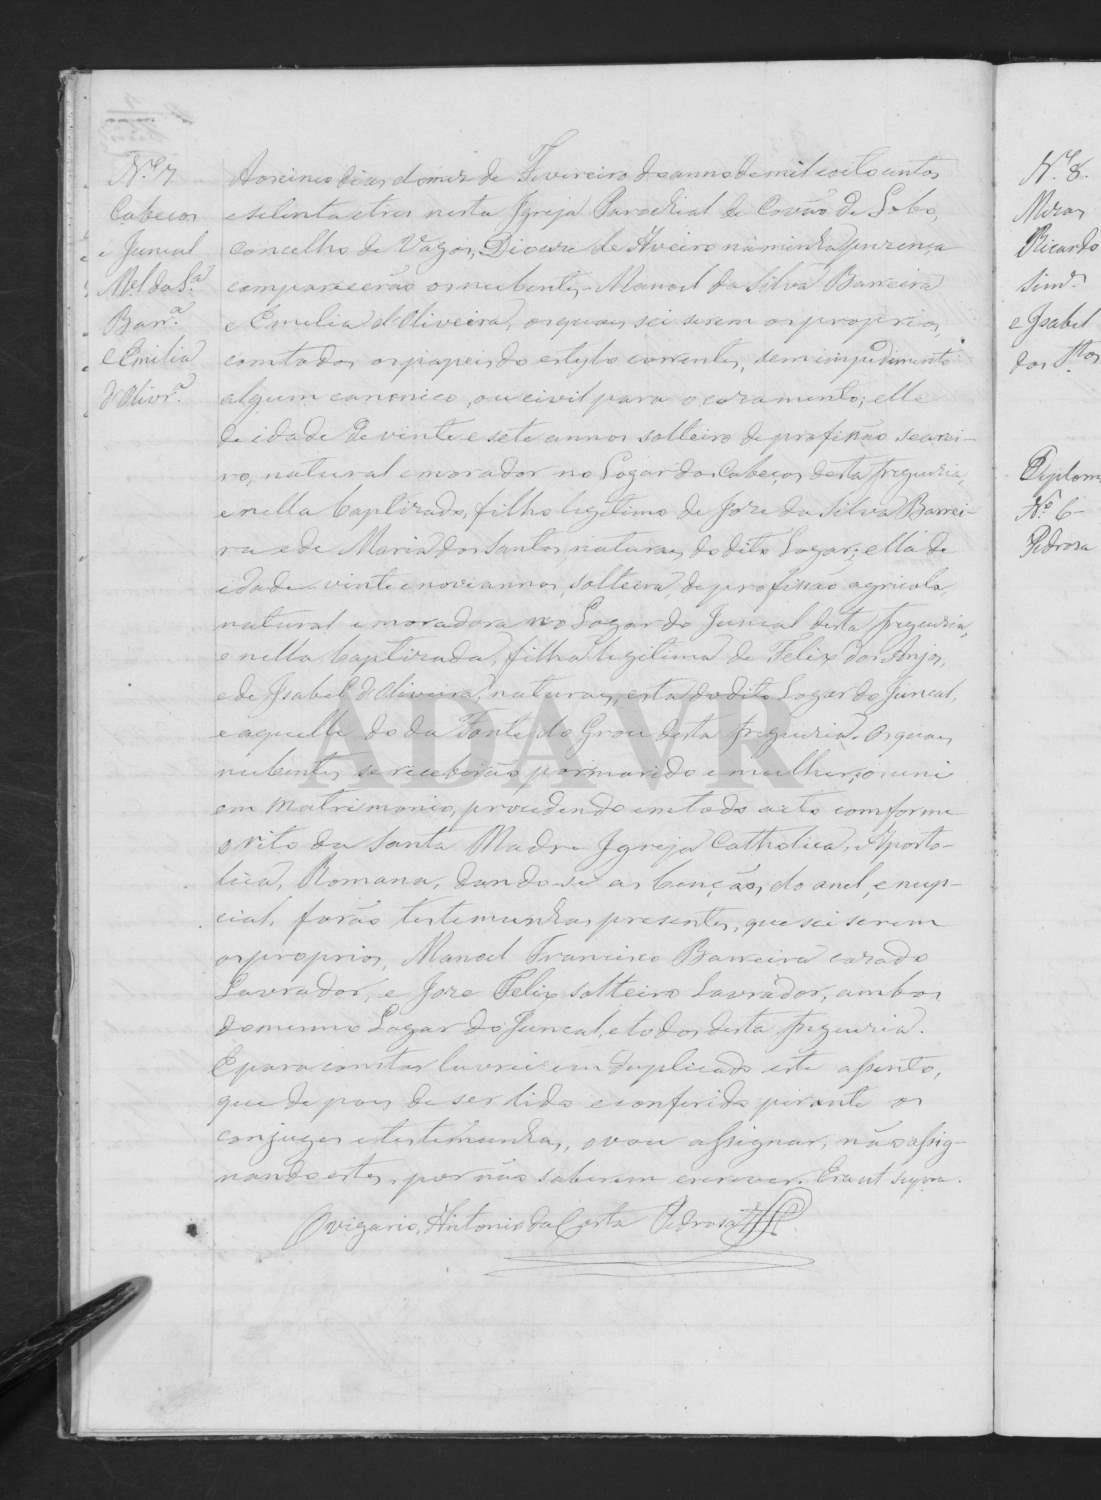 N.º 7
Cabeços
e Juncal
M.el da S.ª
Barr.ª
e Emilia
d'Olivr.ª
Aos cinco dias do mez de Fevereiro do anno de mil oitocentos
e setenta e tres nesta Igreja Parochial de Covão de Lobo,
concelho de Vagos, Diocese de Aveiro na minha prezença
comparecerão os nubentes Manoel da Silva Barreira
e Emilia d'Oliveira, os quaes sei serem os proprios,
com todos os papeis do estylo correntes, sem impedimento
algum canonico, ou civil para o cazamento; elle
de idade de vinte e sete annos solteiro de profissão searei-
ro, natural e morador no Logar dos Cabeços desta freguezia,
e nella baptizado, filho legitimo de Joze da Silva Barrei-
ra e de Maria dos Santos, naturaes do dito Logar; ella de
idade vinte e nove annos, solteira, de profissão agricola,
natural e moradora no Logar do Juncal desta freguezia,
e nella baptizada, filha legitima de Felix dos Anjos,
e de Isabel d'Oliveira, naturaes, esta do dito Logar do Juncal,
e aquelle do da Fonte do Grou desta freguezia. Os quaes
nubentes se receberão por marido e mulher, e os uni
em Matrimonio, procedendo em todo acto comforme
o rito da Santa Madre Igreja Catholica, Aposto-
lica, Romana, dando-se as bençãos, do anel, e nup-
cial. forão testemunhas presentes, que sei serem
os proprios, Manoel Francisco Barreira cazado
Lavrador, e Joze Felix solteiro Lavrador, ambos
do mesmo Logar do Juncal, e todos desta freguezia.
E para constar lavrei em duplicado este assento,
que depois de ser lido e conferido perante os
conjuges e testemunhas, o vou assignar, não assig-
nando estes, por não saberem escrever. Era ut supra.
O vigario, Antonio da Costa Pedrosa
N.º 8.
Mezas
Ricardo
e Isabel
dos S.tos
Diplom
N.º 6
Pedrosa
ADAVR